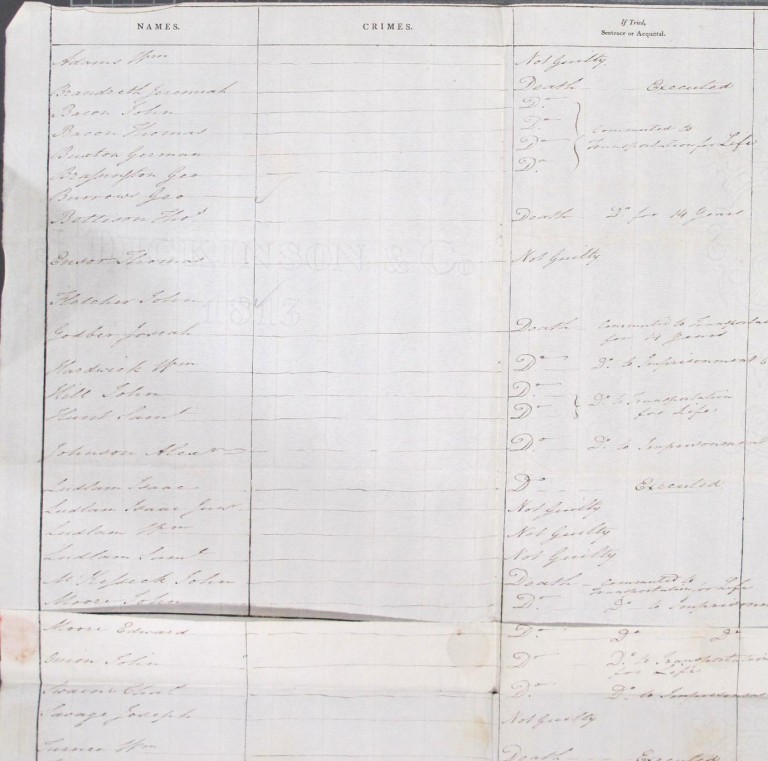 NAMES. CRIMES. If Tried, Sentence or Acquittal.
Adams Wm Not Guilty
Brandreth Jeremiah Death Executed
Bacon John Do
Bacon Thomas Do commuted to
Buxton German Do Transportation for Life
Brassington Geo Do
Burrows Geo
Bettison Thos Death Do for 14 Years
Ensor Thomas Not Guilty
Fletcher John
Godber Josiah Death Commuted to Transportat
for 14 Years
Hardwick Wm Do Do to Imprisonment
Hill John Do Do to Transportation
Hunt Saml Do for Life
Johnson Alexr Do Do to Imprisonment
Ludlam Isaac Do Executed
Ludlam Isaac Junr Not Guilty
Ludlam Wm Not Guilty
Ludlam Saml Not Guilty
McKesseck John Death Commuted to
Transportation for Life
Moore John Do Do to Imprisonm
Moore Edward Do Do Do
Onion John Do Do to Transportation
for Life
Swaine Chas Do Do to Imprisonme
Savage Joseph Not Guilty
Turner Wm Death Executed